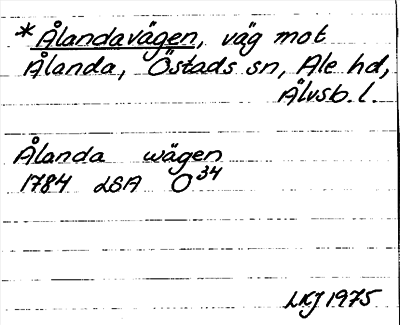 *Ålandavägen, väg mot
Ålanda, Östads sn, Ale hd,
Älvsb. l.
Ålanda wägen
1784 LSA O34
LKJ 1975